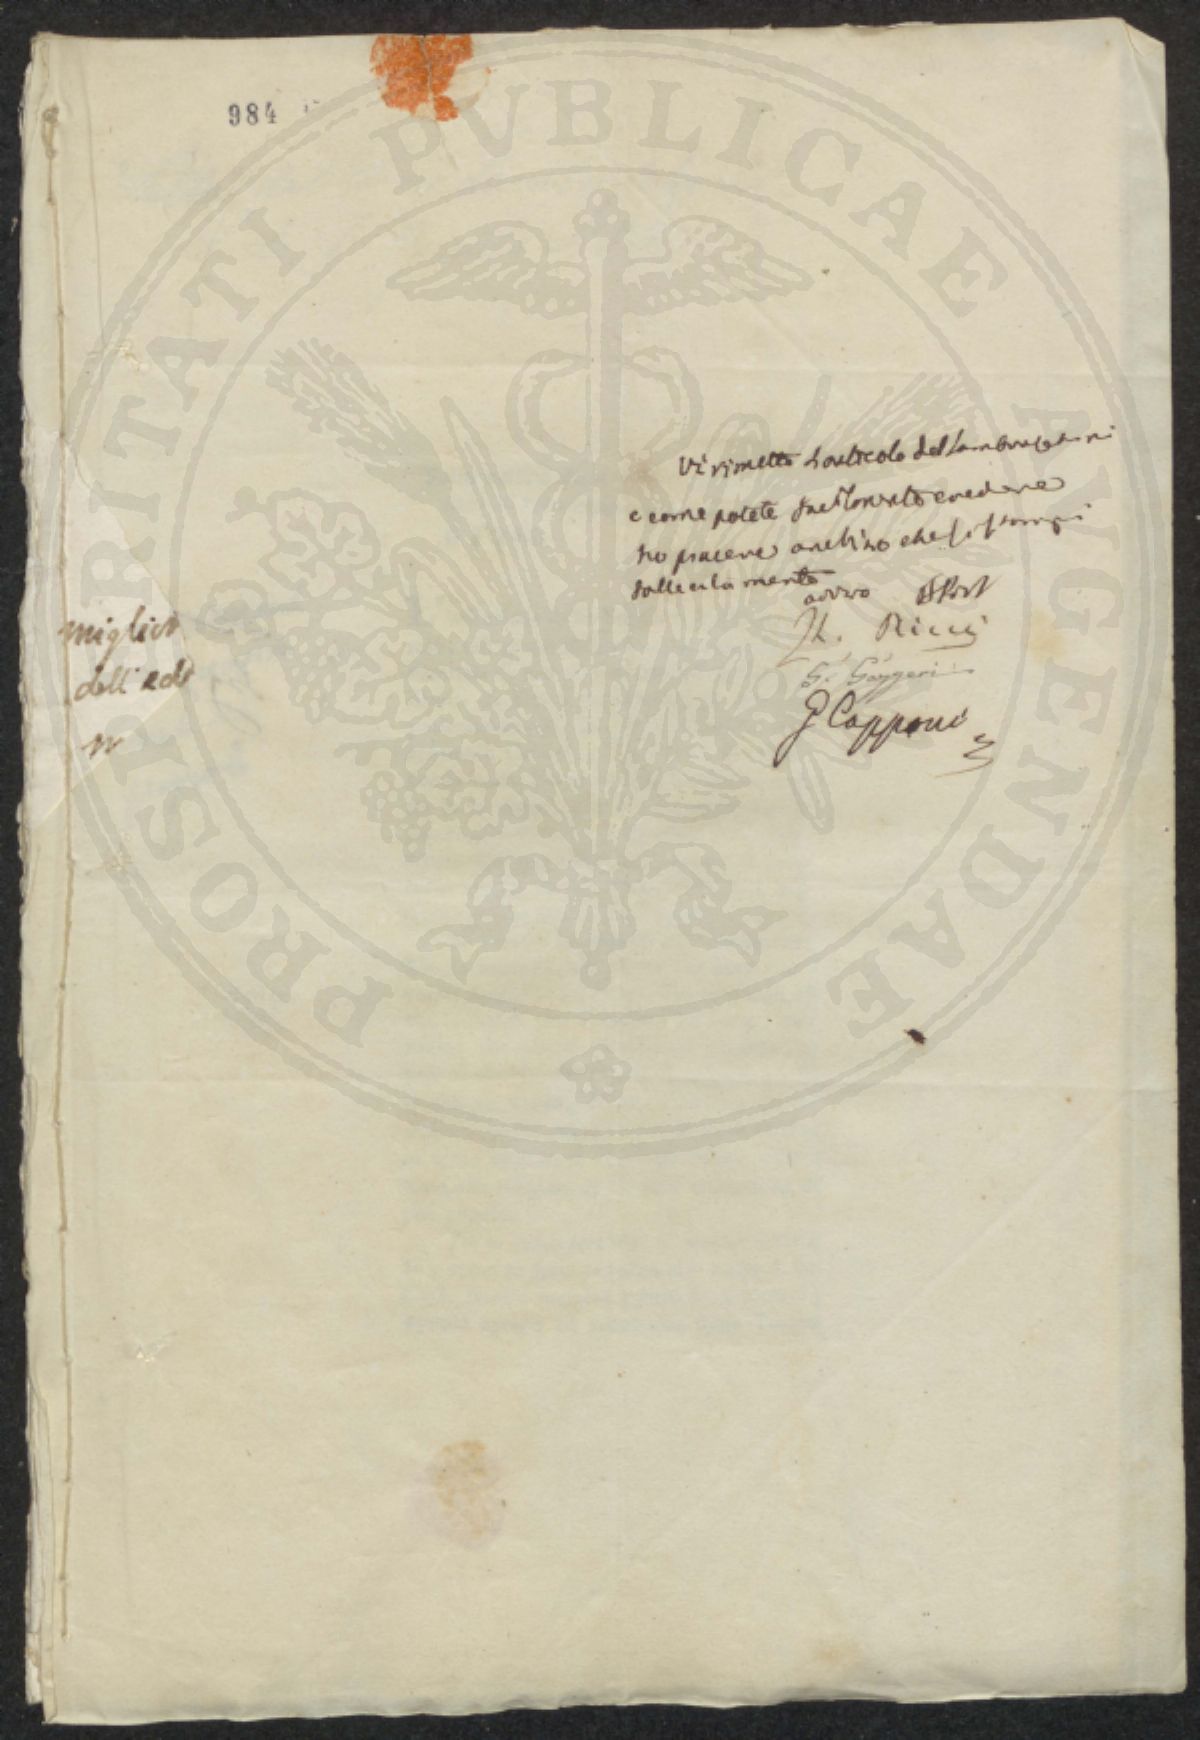 984
PROSPERITATI PVBLICAE AVGENDAE
Vi rimetto l'articolo del Lambruschini
e come potete facilmente credere
ho piacere anch'io che si stampi
sollecitamente
addio
L. Ricci
G. Gazzeri
G Capponi
miglior
dell' edi